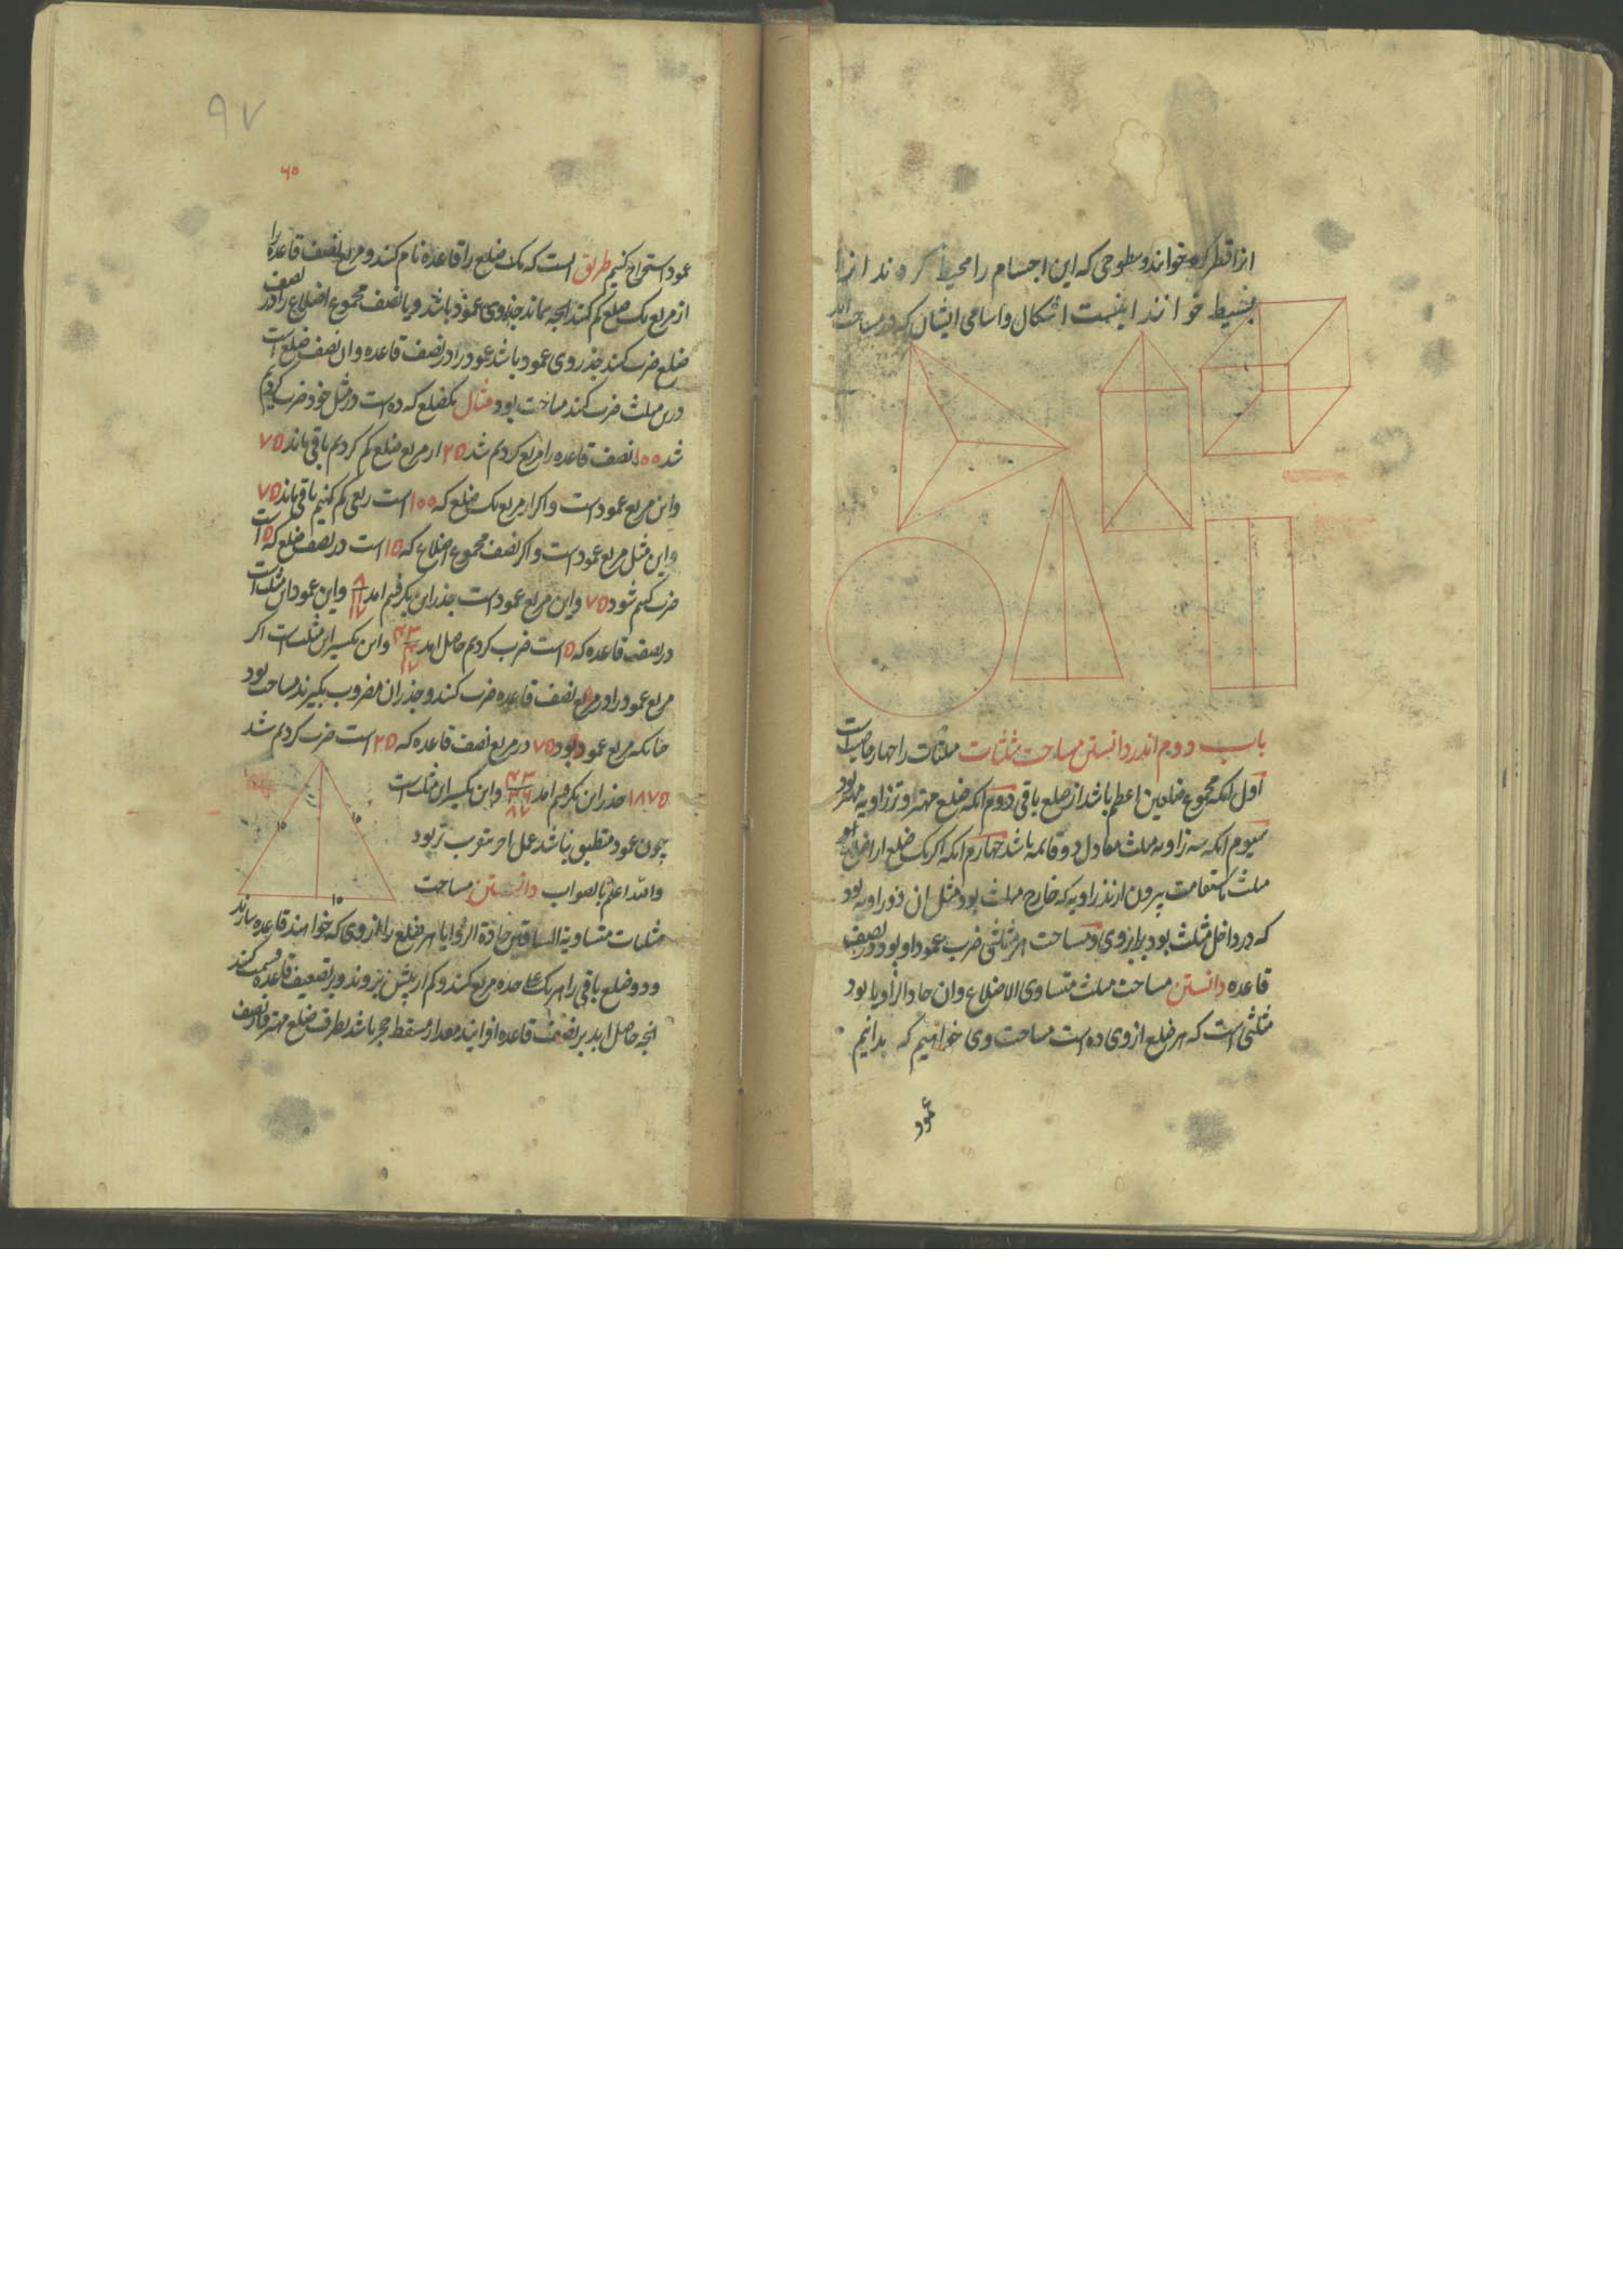 انرا قطر کره خوانند و سطوحی که این اجسام را محیط کردند انرا
بسیط خوانند اینست اشکال و اسامی ایشان که در مساحت اید
باب دوم اندر دانستن مساحت مثلثات مثلثات را چهار خاصیت است
اول انکه مجموع ضلعین اعظم باشد از ضلع باقی دوم انکه ضلع مهتر وتر زاویه مهتر بود
سیوم انکه سه زاویه مثلث معادل دو قائمه باشد چهارم انکه اکر یک ضلع از اضلاع
مثلث باستقامت بیرون ارند زاویه که خارج مثلث بود مثل ان دو زاویه بود
که در داخل مثلث بود برابر وی و مساحت هر مثلثی ضرب عمود او بود در نصف
قاعده دانستن مساحت مثلث متساوی الاضلاع وان حاد الزوایا بود
مثلثی است که هر ضلع از وی ده است مساحت وی خواهیم که بدانیم
عمود
۹۷
۶۰
عمود استخراج کنیم طریق است که یک ضلع را قاعده نام کنند و مربع نصف قاعده را
از مربع یک ضلع کم کنند انچه بماند جذر وی عمود باشد و یا نصف مجموع اضلاع را در نصف
ضلع ضرب کنند جذر وی عمود باشد عمود را در نصف قاعده وان نصف ضلع است
درین مثلث ضرب کنند مساحت بود مثال یکضلع که ده است در مثل خود ضرب کردیم
شد ۱۰۰ نصف قاعده را مربع کردیم شد ۲۵ از مربع ضلع کم کردیم باقی ماند ۷۵
واین مربع عمود است واکر از مربع یک ضلع که ۱۰۰ است ربعی کم کنیم باقی ماند ۷۵
واین مثل مربع عمود است واکر نصف مجموع اضلاع که ۱۵ است در نصف ضلع که ۵ است
ضرب کنیم شود ۷۵ واین مربع عمود است جذر این بکرفتیم امد ۸ ۱۱ ۱۷ واین عمود این مثلث است
در نصف قاعده که ۵ است ضرب کردیم حاصل امد ۴۳ واین تکسیر این مثلث است اکر
مربع عمود را در مربع نصف قاعده ضرب کنند و جذر ان مضروب بکیرند مساحت بود
چنانکه مربع عمود بود ۷۵ در مربع نصف قاعده که ۲۵ است ضرب کردیم شد
۱۸۷۵ جذر این بکرفتیم امد ۴۳ ۲۶ ۸۷ واین تکسیر این مثلث است
چون عمود منطبق نباشد عمل اخر بتقریب تر بود
والله اعلم بالصواب دانستن مساحت
۱۰
۱۰
۱۰
مثلثات متساویة الساقین حادة الزوایا هر ضلع را از وی که خواهند قاعده سازند
ودو ضلع باقی را هر یک علی حده مربع کنند وکم از بیش بروند وبر تضعیف قاعده قسمت کنند
انچه حاصل اید بر نصف قاعده افزایند مقدار مسقط حجر باشد بطرف ضلع مهتر